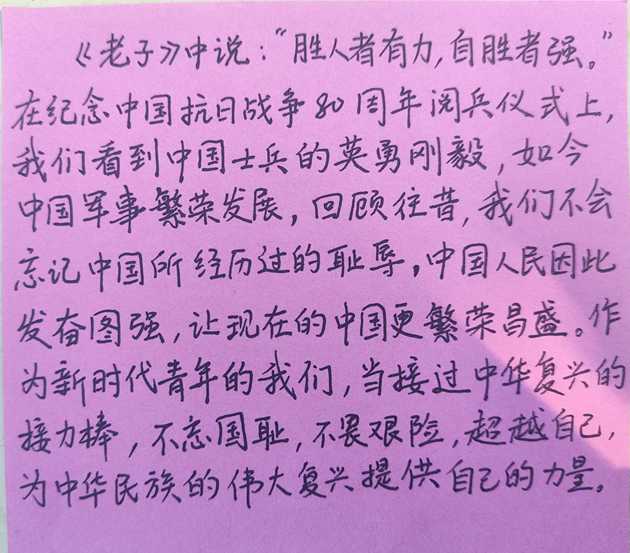 《老子》中说：“胜人者有力，自胜者强。”
在纪念中国抗日战争80周年阅兵仪式上，
我们看到中国士兵的英勇刚毅，如今
中国军事繁荣发展，回顾往昔，我们不会
忘记中国所经历过的耻辱，中国人民因此
发奋图强，让现在的中国更繁荣昌盛。作
为新时代青年的我们，当接过中华复兴的
接力棒，不忘国耻，不畏艰险，超越自己，
为中华民族的伟大复兴提供自己的力量。